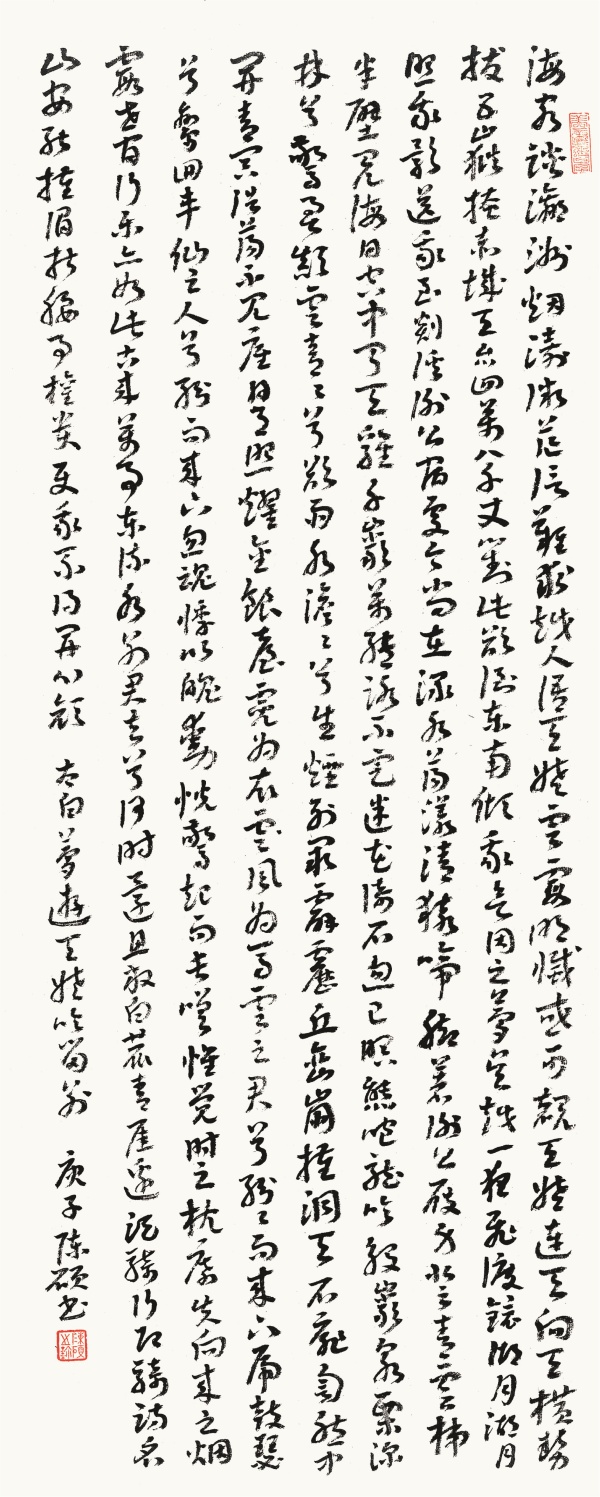 海客談瀛洲煙濤微茫信難求越人語天姥雲霞明滅或可覩天姥連天向天橫勢
拔五嶽掩赤城天台四萬八千丈對此欲倒東南傾我欲因之夢吳越一夜飛渡鏡湖月湖月
照我影送我至剡溪謝公宿處今尚在淥水蕩漾清猿啼腳著謝公屐身登青雲梯
半壁見海日空中聞天雞千巖萬轉路不定迷花倚石忽已暝熊咆龍吟殷巖泉栗深
林兮驚層巔雲青青兮欲雨水澹澹兮生煙列缺霹靂丘巒崩摧洞天石扉訇然中
開青冥浩蕩不見底日月照耀金銀臺霓為衣兮風為馬雲之君兮紛紛而來下虎鼓瑟
兮鸞回車仙之人兮紛而來下忽魂悸以魄動怳驚起而長嗟惟覺時之枕席失向來之烟
霞世間行樂亦如此古來萬事東流水別君去兮何時還且放白鹿青崖邊須行即騎訪名
山安能摧眉折腰事權貴使我不得開心顏 太白夢遊天姥吟留別 庚子陳碩書